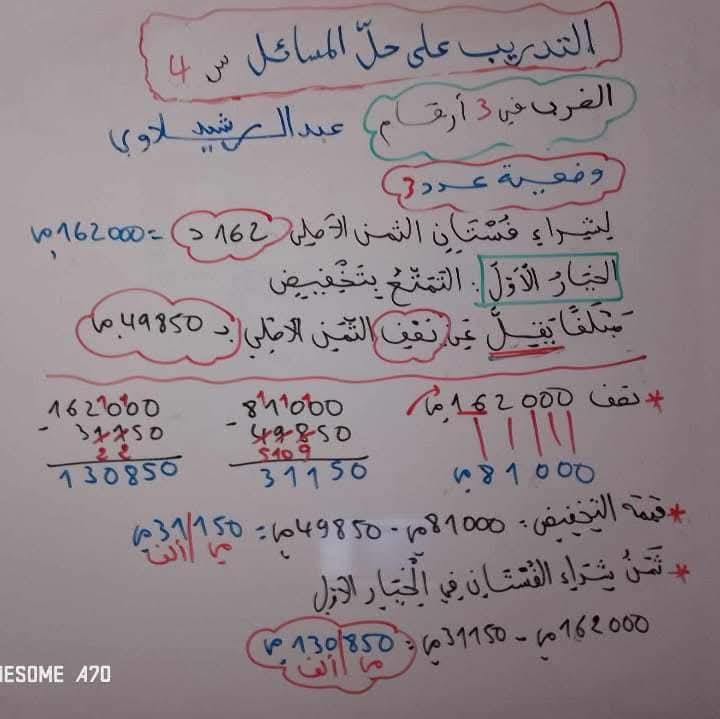 التدريب على حلّ المسائل س 4
الضرب في 3 أرقام
عبد الرشيد سلاوي
وضعية عدد 3
لِشِراءِ فُسْتَانٍ الثمن الأصلي 162 د = 162000 مي
الخيارُ الأوّلَ : التمتّعُ بِتَخْفِيضٍ
مَبْلَغًا يَقِلُّ عَنْ نصف الثّمن الأصلي بـ 49850 مي
* نصف 162000 مي
81000 مي
81000
- 49850
31150
162000
- 31150
130850
* قيمة التخفيض = 81000 مي - 49850 مي = 31/150 مي
ألف مي
* ثَمَنُ شِرَاءِ الفُسْتَانِ فِي الْخِيَارِ الأوّل
162000 مي - 31150 مي = 130/850 مي
ألف مي
NESOME A70